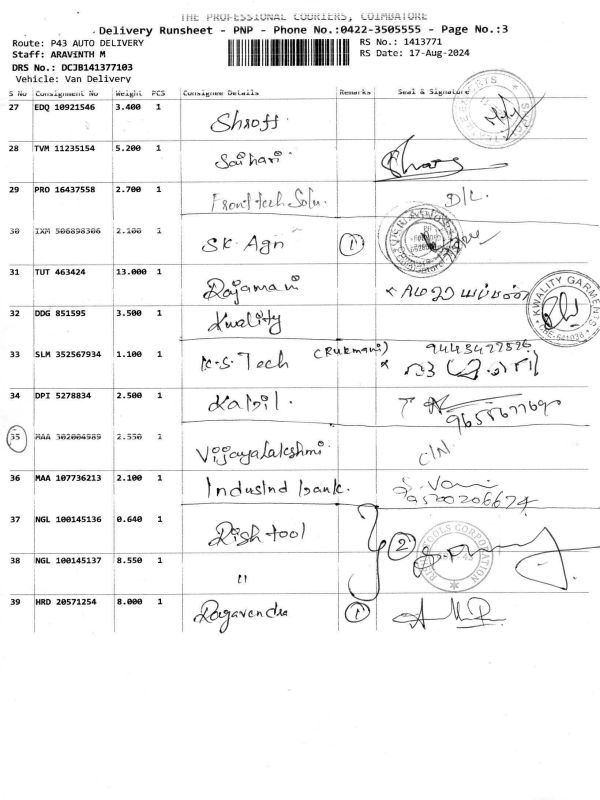 THE PROFESSIONAL COURIERS, COIMBATORE
Delivery Runsheet - PNP - Phone No.:0422-3505555 - Page No.:3
Route: P43 AUTO DELIVERY RS No.: 1413771
Staff: ARAVINTH M RS Date: 17-Aug-2024
DRS No.: DCJB141377103
Vehicle: Van Delivery
S No Consignment No Weight PCS Consignee Details Remarks Seal & Signature
27 EDQ 10921546 3.400 1 Shroff
28 TVM 11235154 5.200 1 Saihari
29 PRO 16437558 2.700 1 Fronttech Solu. D/L
30 IXM 506898306 2.100 1 SK Agn 1
31 TUT 463424 13.000 1 Rajamani
32 DDG 851595 3.500 1 Kwality KWALITY GARMENTS CBE-641038
33 SLM 352567934 1.100 1 K.S. Tech (Rukmani)
34 DPI 5278834 2.500 1 Kabil.
35 MAA 302004989 2.550 1 Vijayalakshmi C/N.
36 MAA 107736213 2.100 1 IndusInd bank. S. Vani 9500206674
37 NGL 100145136 0.640 1 Rish tool 2 TOOLS CORPORATION
38 NGL 100145137 8.550 1 "
39 HRD 20571254 8.000 1 Ragavendra 1